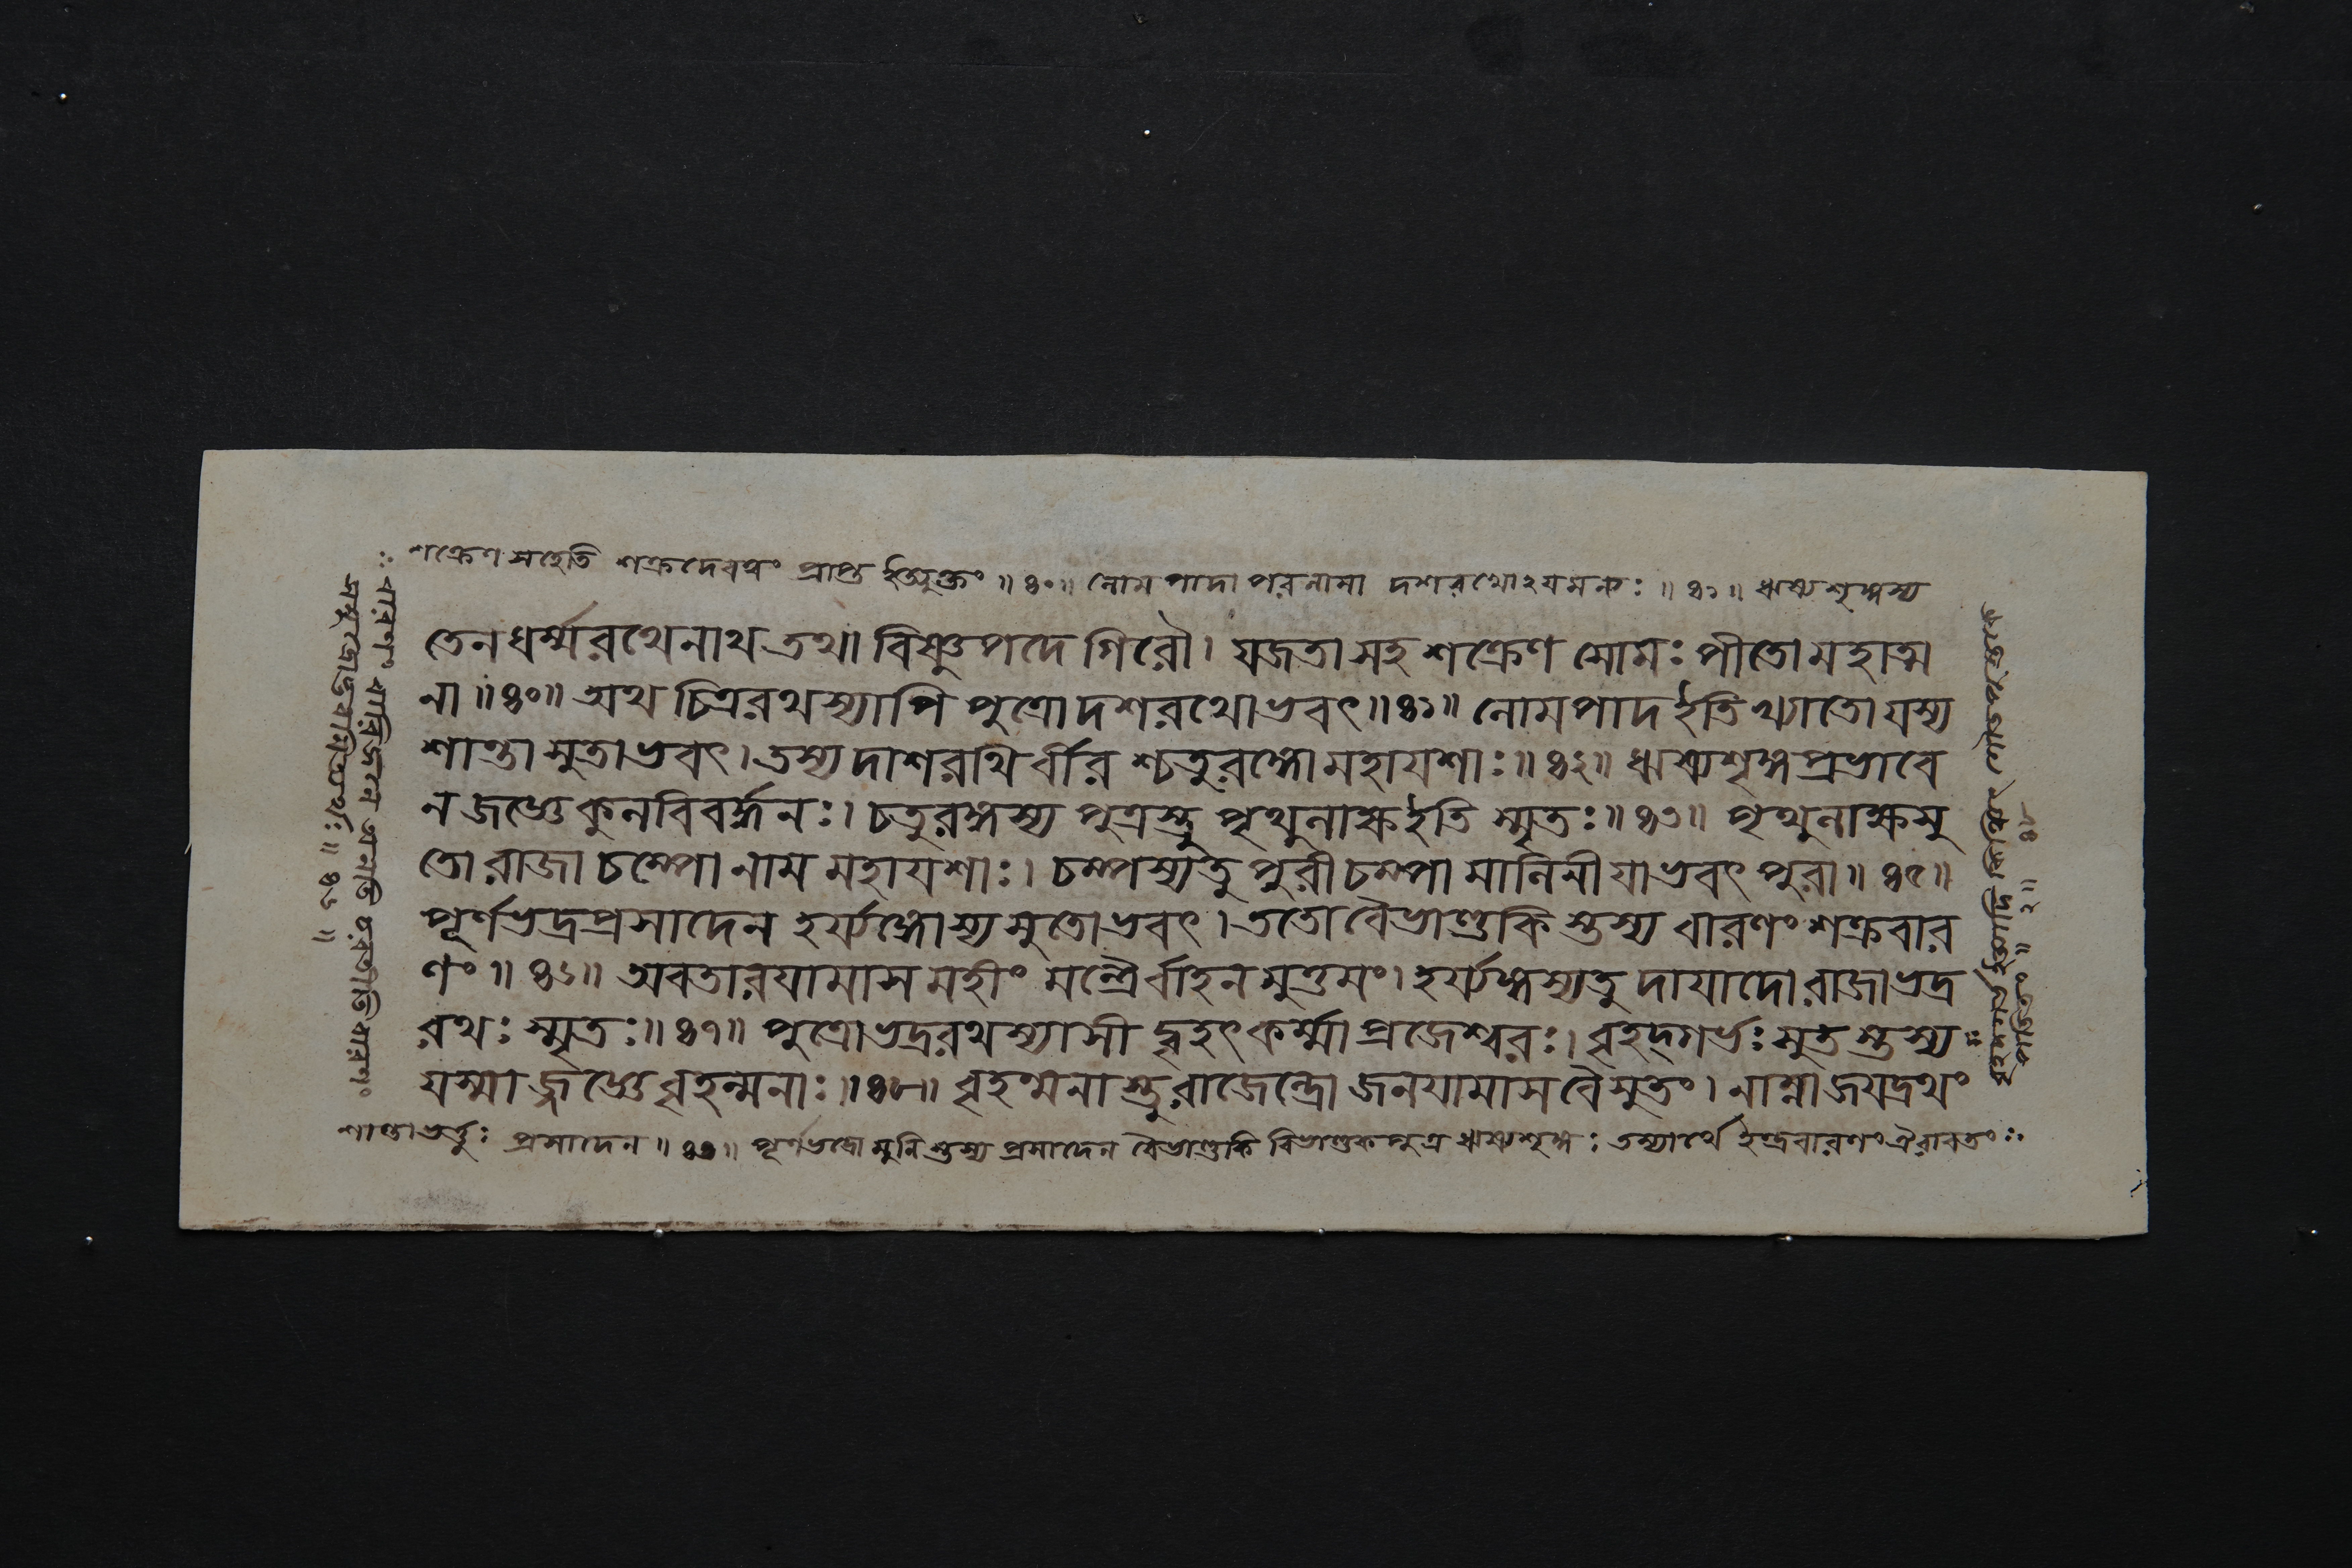 শক্রেণ সহেতি শক্রদেবত্বং প্রাপ্ত ইত্যুক্তং ॥ ৪০॥ লোমপাদাপরনামা দশরথোঽযমন্যঃ ॥ ৪১॥ ঋষ্যশৃঙ্গস্য
তেন ধর্ম্মরথেনাথ তথা বিষ্ণুপদে গিরৌ। যজতা সহ শক্রেণ সোমঃ পীতো মহাত্ম
না ॥৪০॥ অথ চিত্ররথস্যাপি পুত্রো দশরথোভবৎ॥৪১॥ লোমপাদ ইতি খ্যাতো যস্য
শান্তা সুতাভবৎ। তস্য দাশরথির্বীরশ্চতুরঙ্গো মহাযশাঃ॥৪২॥ ঋষ্যশৃঙ্গপ্রভাবে
ন জজ্ঞে কুলবিবর্দ্ধনঃ। চতুরঙ্গস্য পুত্রস্তু পৃথুলাক্ষ ইতি স্মৃতঃ॥৪৩॥ পৃথুলাক্ষসু
তো রাজা চম্পো নাম মহাযশাঃ। চম্পস্য তু পুরী চম্পা মালিনী যাভবৎ পুরা॥৪৫॥
পূর্ণভদ্রপ্রসাদেন হর্য্যঙ্গোস্য সুতোভবৎ। ততো বৈভাণ্ডকিস্তস্য বারণং শক্রবার
ণং॥৪৬॥ অবতারযামাস মহীং মন্ত্রৈর্বাহনমুত্তমং। হর্য্যঙ্গস্য তু দাযাদো রাজা ভদ্র
রথঃ স্মৃতঃ॥৪৭॥ পুত্রো ভদ্ররথস্যাসীদ্বৃহৎকর্ম্মা প্রজেশ্বরঃ। বৃহদ্গর্ভঃ সুতস্তস্য
যস্মাজ্জজ্ঞে বৃহন্মনাঃ॥৪৮॥ বৃহন্মনাস্তু রাজেন্দ্রো জনযামাস বৈ সুতং। নাম্না জযদ্রথং
শান্তাভর্ত্তুঃ প্রসাদেন ॥৪৩॥ পূর্ণভদ্রো মুনিস্তস্য প্রসাদেন বৈভাণ্ডকি বিভাণ্ডকপুত্র ঋষ্যশৃঙ্গঃ তস্যার্থে ইন্দ্রবারণং ঐরাবতং
বারণং বারিজলে অলতি চরতীতি বারণং
সমুদ্রোদ্ভবমিত্যর্থঃ ॥ ৪৬ ॥